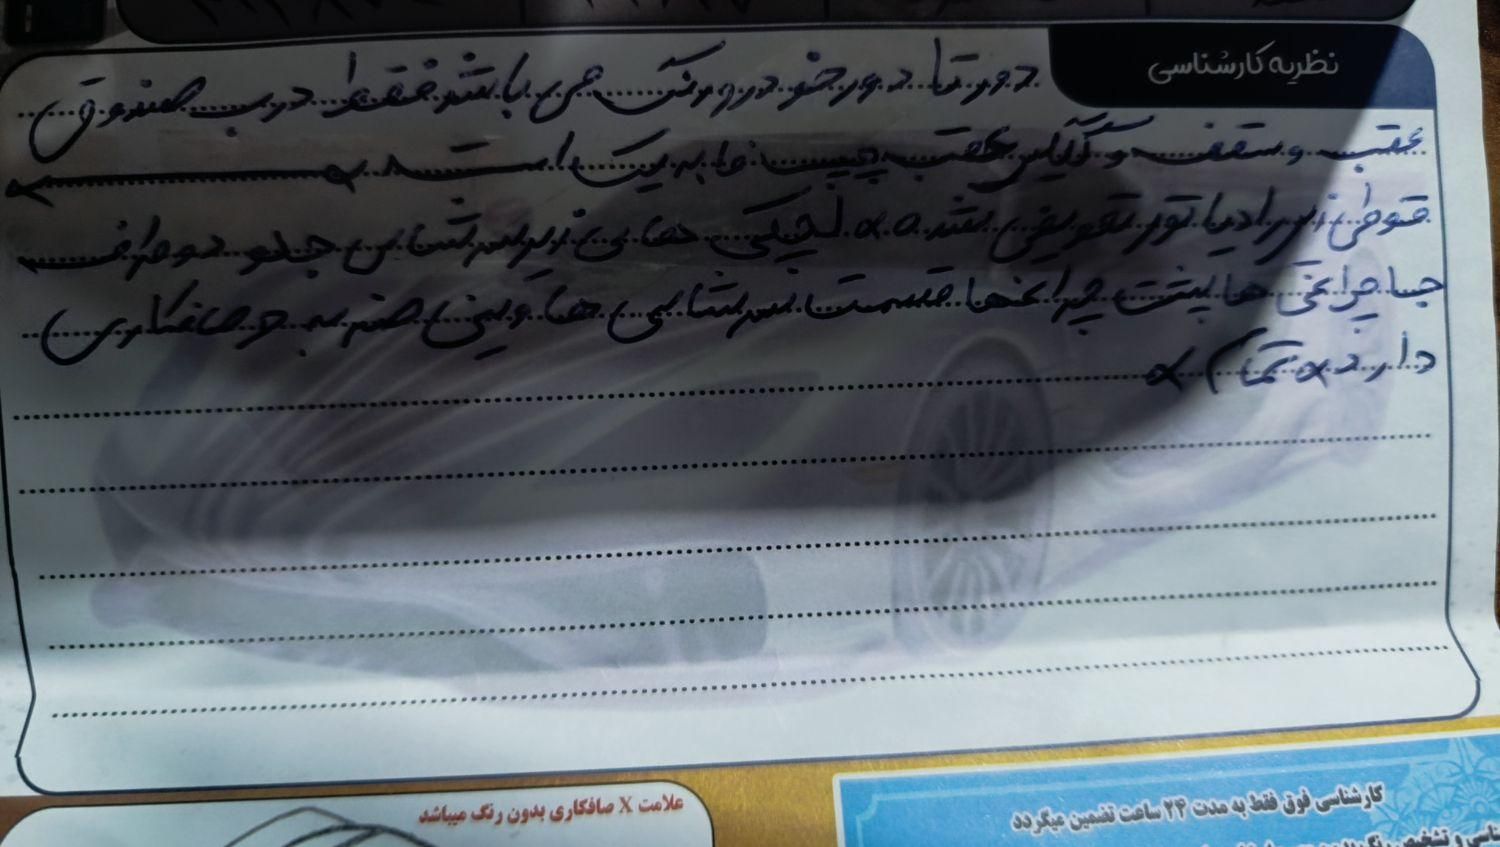 نظریه کارشناسی
دور تا دور خودرو رنگ می باشد فقط درب صندوق
عقب و سقف و گلگیر عقب چپ نما به یک است
قوطی زیر رادیاتور تعویض شده لچکی های زیر شاسی جلو دو طرف
جا چراغی ها پشت چراغها قسمت سرشاسی ها و سینی ضربه و صافکاری
دارد تمام
علامت X صافکاری بدون رنگ میباشد
کارشناسی فوق فقط به مدت ۲۴ ساعت تضمین میگردد